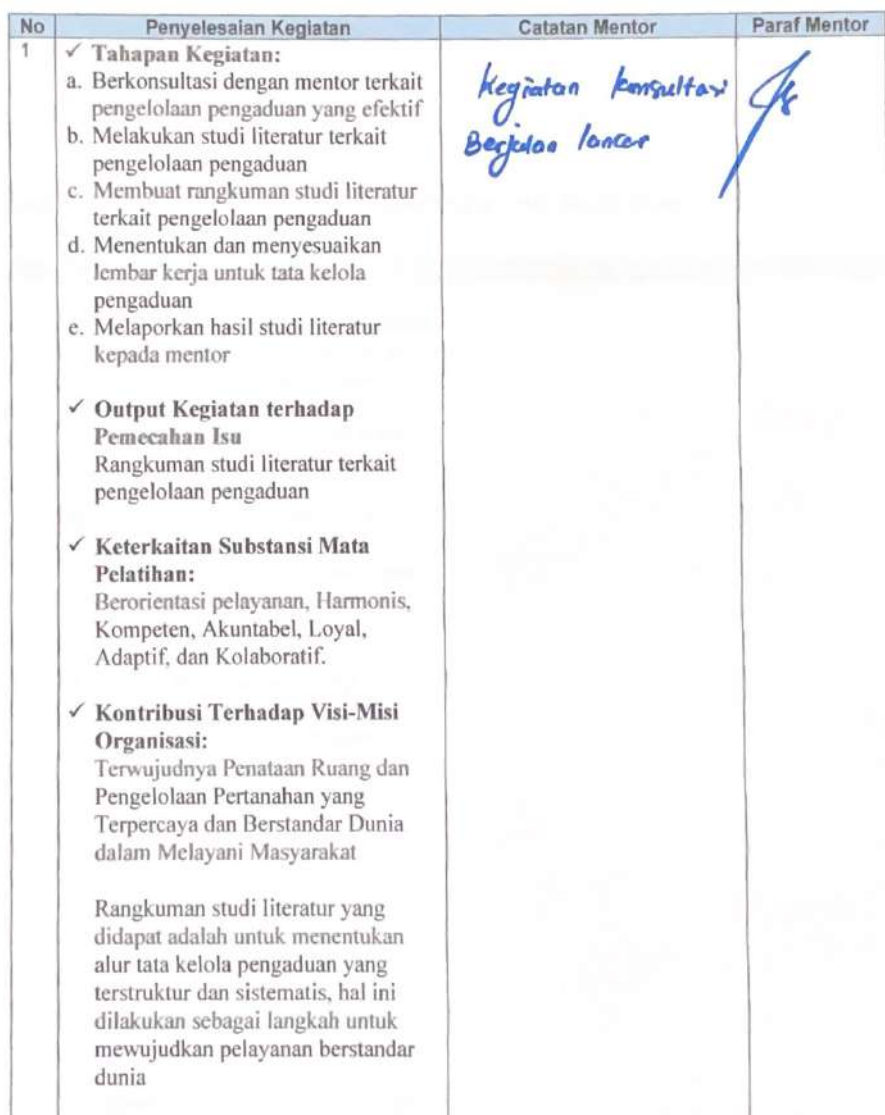 No Penyelesaian Kegiatan Catatan Mentor Paraf Mentor
1 ✓ Tahapan Kegiatan:
a. Berkonsultasi dengan mentor terkait
pengelolaan pengaduan yang efektif
b. Melakukan studi literatur terkait
pengelolaan pengaduan
c. Membuat rangkuman studi literatur
terkait pengelolaan pengaduan
d. Menentukan dan menyesuaikan
lembar kerja untuk tata kelola
pengaduan
e. Melaporkan hasil studi literatur
kepada mentor
✓ Output Kegiatan terhadap
Pemecahan Isu
Rangkuman studi literatur terkait
pengelolaan pengaduan
✓ Keterkaitan Substansi Mata
Pelatihan:
Berorientasi pelayanan, Harmonis,
Kompeten, Akuntabel, Loyal,
Adaptif, dan Kolaboratif.
✓ Kontribusi Terhadap Visi-Misi
Organisasi:
Terwujudnya Penataan Ruang dan
Pengelolaan Pertanahan yang
Terpercaya dan Berstandar Dunia
dalam Melayani Masyarakat
Rangkuman studi literatur yang
didapat adalah untuk menentukan
alur tata kelola pengaduan yang
terstruktur dan sistematis, hal ini
dilakukan sebagai langkah untuk
mewujudkan pelayanan berstandar
dunia
Kegiatan konsultasi
Berjalan lancar